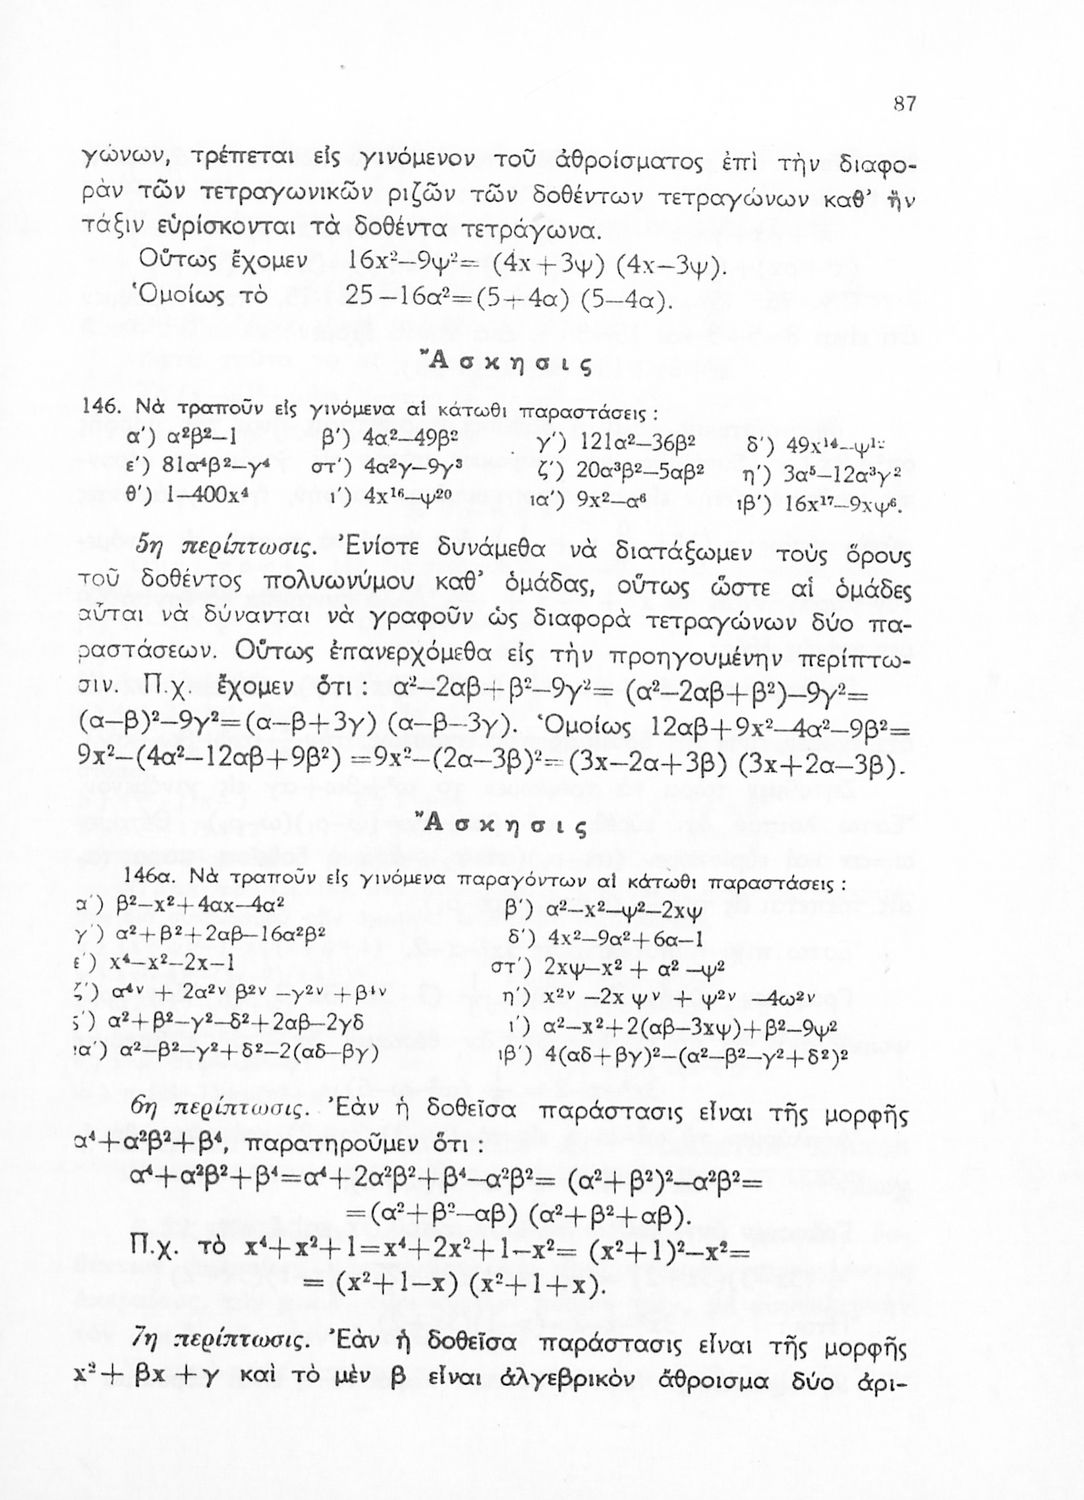 87
γώνων, τρέπεται εἰς γινόμενον τοῦ ἀθροίσματος ἐπὶ τὴν διαφο-
ρὰν τῶν τετραγωνικῶν ριζῶν τῶν δοθέντων τετραγώνων καθ' ἣν
τάξιν εὑρίσκονται τὰ δοθέντα τετράγωνα.
Οὕτως ἔχομεν 16x²—9ψ²= (4x+3ψ) (4x—3ψ).
Ὁμοίως τὸ 25—16α²=(5+4α) (5—4α).
Ἄσκησις
146. Νὰ τραποῦν εἰς γινόμενα αἱ κάτωθι παραστάσεις :
α') α²β²—1 β') 4α²—49β² γ') 121α²—36β² δ') 49x¹⁴—ψ¹²
ε') 81α⁴β²—γ⁴ στ') 4α²γ—9γ³ ζ') 20α³β²—5αβ² η') 3α⁵—12α³γ²
θ') 1—400x⁴ ι') 4x¹⁶—ψ²⁰ ια') 9x²—α⁶ ιβ') 16x¹⁷—9xψ⁶.
5η περίπτωσις. Ἐνίοτε δυνάμεθα νὰ διατάξωμεν τοὺς ὅρους
τοῦ δοθέντος πολυωνύμου καθ' ὁμάδας, οὕτως ὥστε αἱ ὁμάδες
αὗται νὰ δύνανται νὰ γραφοῦν ὡς διαφορὰ τετραγώνων δύο πα-
ραστάσεων. Οὕτως ἐπανερχόμεθα εἰς τὴν προηγουμένην περίπτω-
σιν. Π.χ. ἔχομεν ὅτι : α²—2αβ+β²—9γ²= (α²—2αβ+β²)—9γ²=
(α—β)²—9γ²=(α—β+3γ) (α—β—3γ). Ὁμοίως 12αβ+9x²—4α²—9β²=
9x²—(4α²—12αβ+9β²) =9x²—(2α—3β)²=(3x—2α+3β) (3x+2α—3β).
Ἄσκησις
146α. Νὰ τραποῦν εἰς γινόμενα παραγόντων αἱ κάτωθι παραστάσεις :
α') β²—x²+4αx—4α² β') α²—x²—ψ²—2xψ
γ') α²+β²+2αβ—16α²β² δ') 4x²—9α²+6α—1
ε') x⁴—x²—2x—1 στ') 2xψ—x² + α² —ψ²
ζ') α⁴ᵛ + 2α²ᵛ β²ᵛ —γ²ᵛ +β⁴ᵛ η') x²ᵛ —2x ψᵛ + ψ²ᵛ —4ω²ᵛ
ς') α²+β²—γ²—δ²+2αβ—2γδ ι') α²—x²+2(αβ—3xψ)+β²—9ψ²
ια') α²—β²—γ²+δ²—2(αδ—βγ) ιβ') 4(αδ+βγ)²—(α²—β²—γ²+δ²)²
6η περίπτωσις. Ἐὰν ἡ δοθεῖσα παράστασις εἶναι τῆς μορφῆς
α⁴+α²β²+β⁴, παρατηροῦμεν ὅτι :
α⁴+α²β²+β⁴=α⁴+2α²β²+β⁴—α²β²= (α²+β²)²—α²β²=
=(α²+β²—αβ) (α²+β²+αβ).
Π.χ. τὸ x⁴+x²+1=x⁴+2x²+1—x²= (x²+1)²—x²=
= (x²+1—x) (x²+1+x).
7η περίπτωσις. Ἐὰν ἡ δοθεῖσα παράστασις εἶναι τῆς μορφῆς
x²+ βx +γ καὶ τὸ μὲν β εἶναι ἀλγεβρικὸν ἄθροισμα δύο ἀρι-